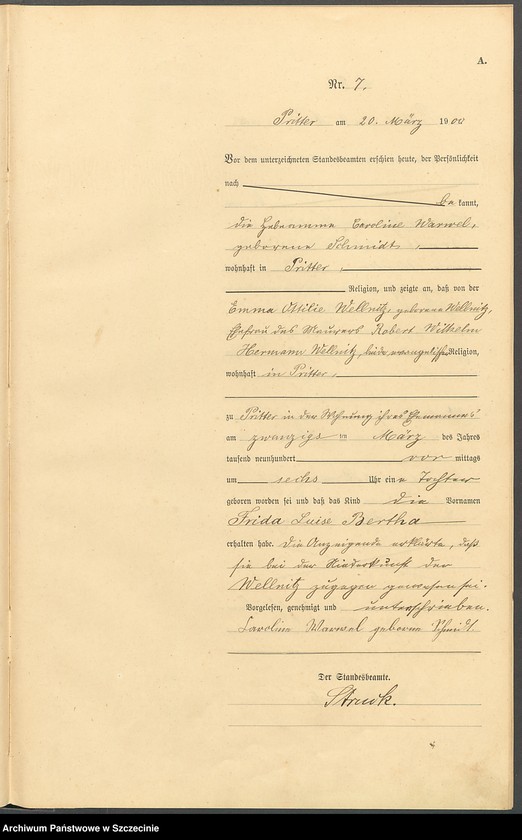 A.
Nr. 7.
Pritter am 20. März 1900
Vor dem unterzeichneten Standesbeamten erschien heute, der Persönlichkeit
nach
be kannt,
die Hebeamme Caroline Warwel,
geborene Schmidt,
wohnhaft in Pritter,
Religion, und zeigte an, daß von der
Emma Ottilie Wellnitz, geborene Wellnitz,
Ehefrau des Maurers Robert Wilhelm
Hermann Wellnitz, beide evangelischer Religion,
wohnhaft in Pritter,
zu Pritter in der Wohnung ihres Ehemannes
am zwanzigs ten März des Jahres
tausend neunhundert vor mittags
um sechs Uhr ein e Tochter
geboren worden sei und daß das Kind die Vornamen
Frida Luise Bertha
erhalten habe. Die Anzeigende erklärte, daß
sie bei der Niederkunft der
Wellnitz zugegen gewesen sei.
Vorgelesen, genehmigt und unterschrieben.
Caroline Warwel geborne Schmidt
Der Standesbeamte.
Struck.
Archiwum Państwowe w Szczecinie